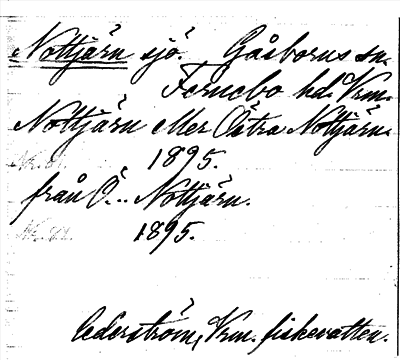 Nottjärn sjö. Gåsborns sn.
Fernebo hd. Vrm.
Nottjärn eller Östra Nottjärn.
1895.
från Ö. Nottjärn.
1895.
Cederström, Vrm. fiskevatten.